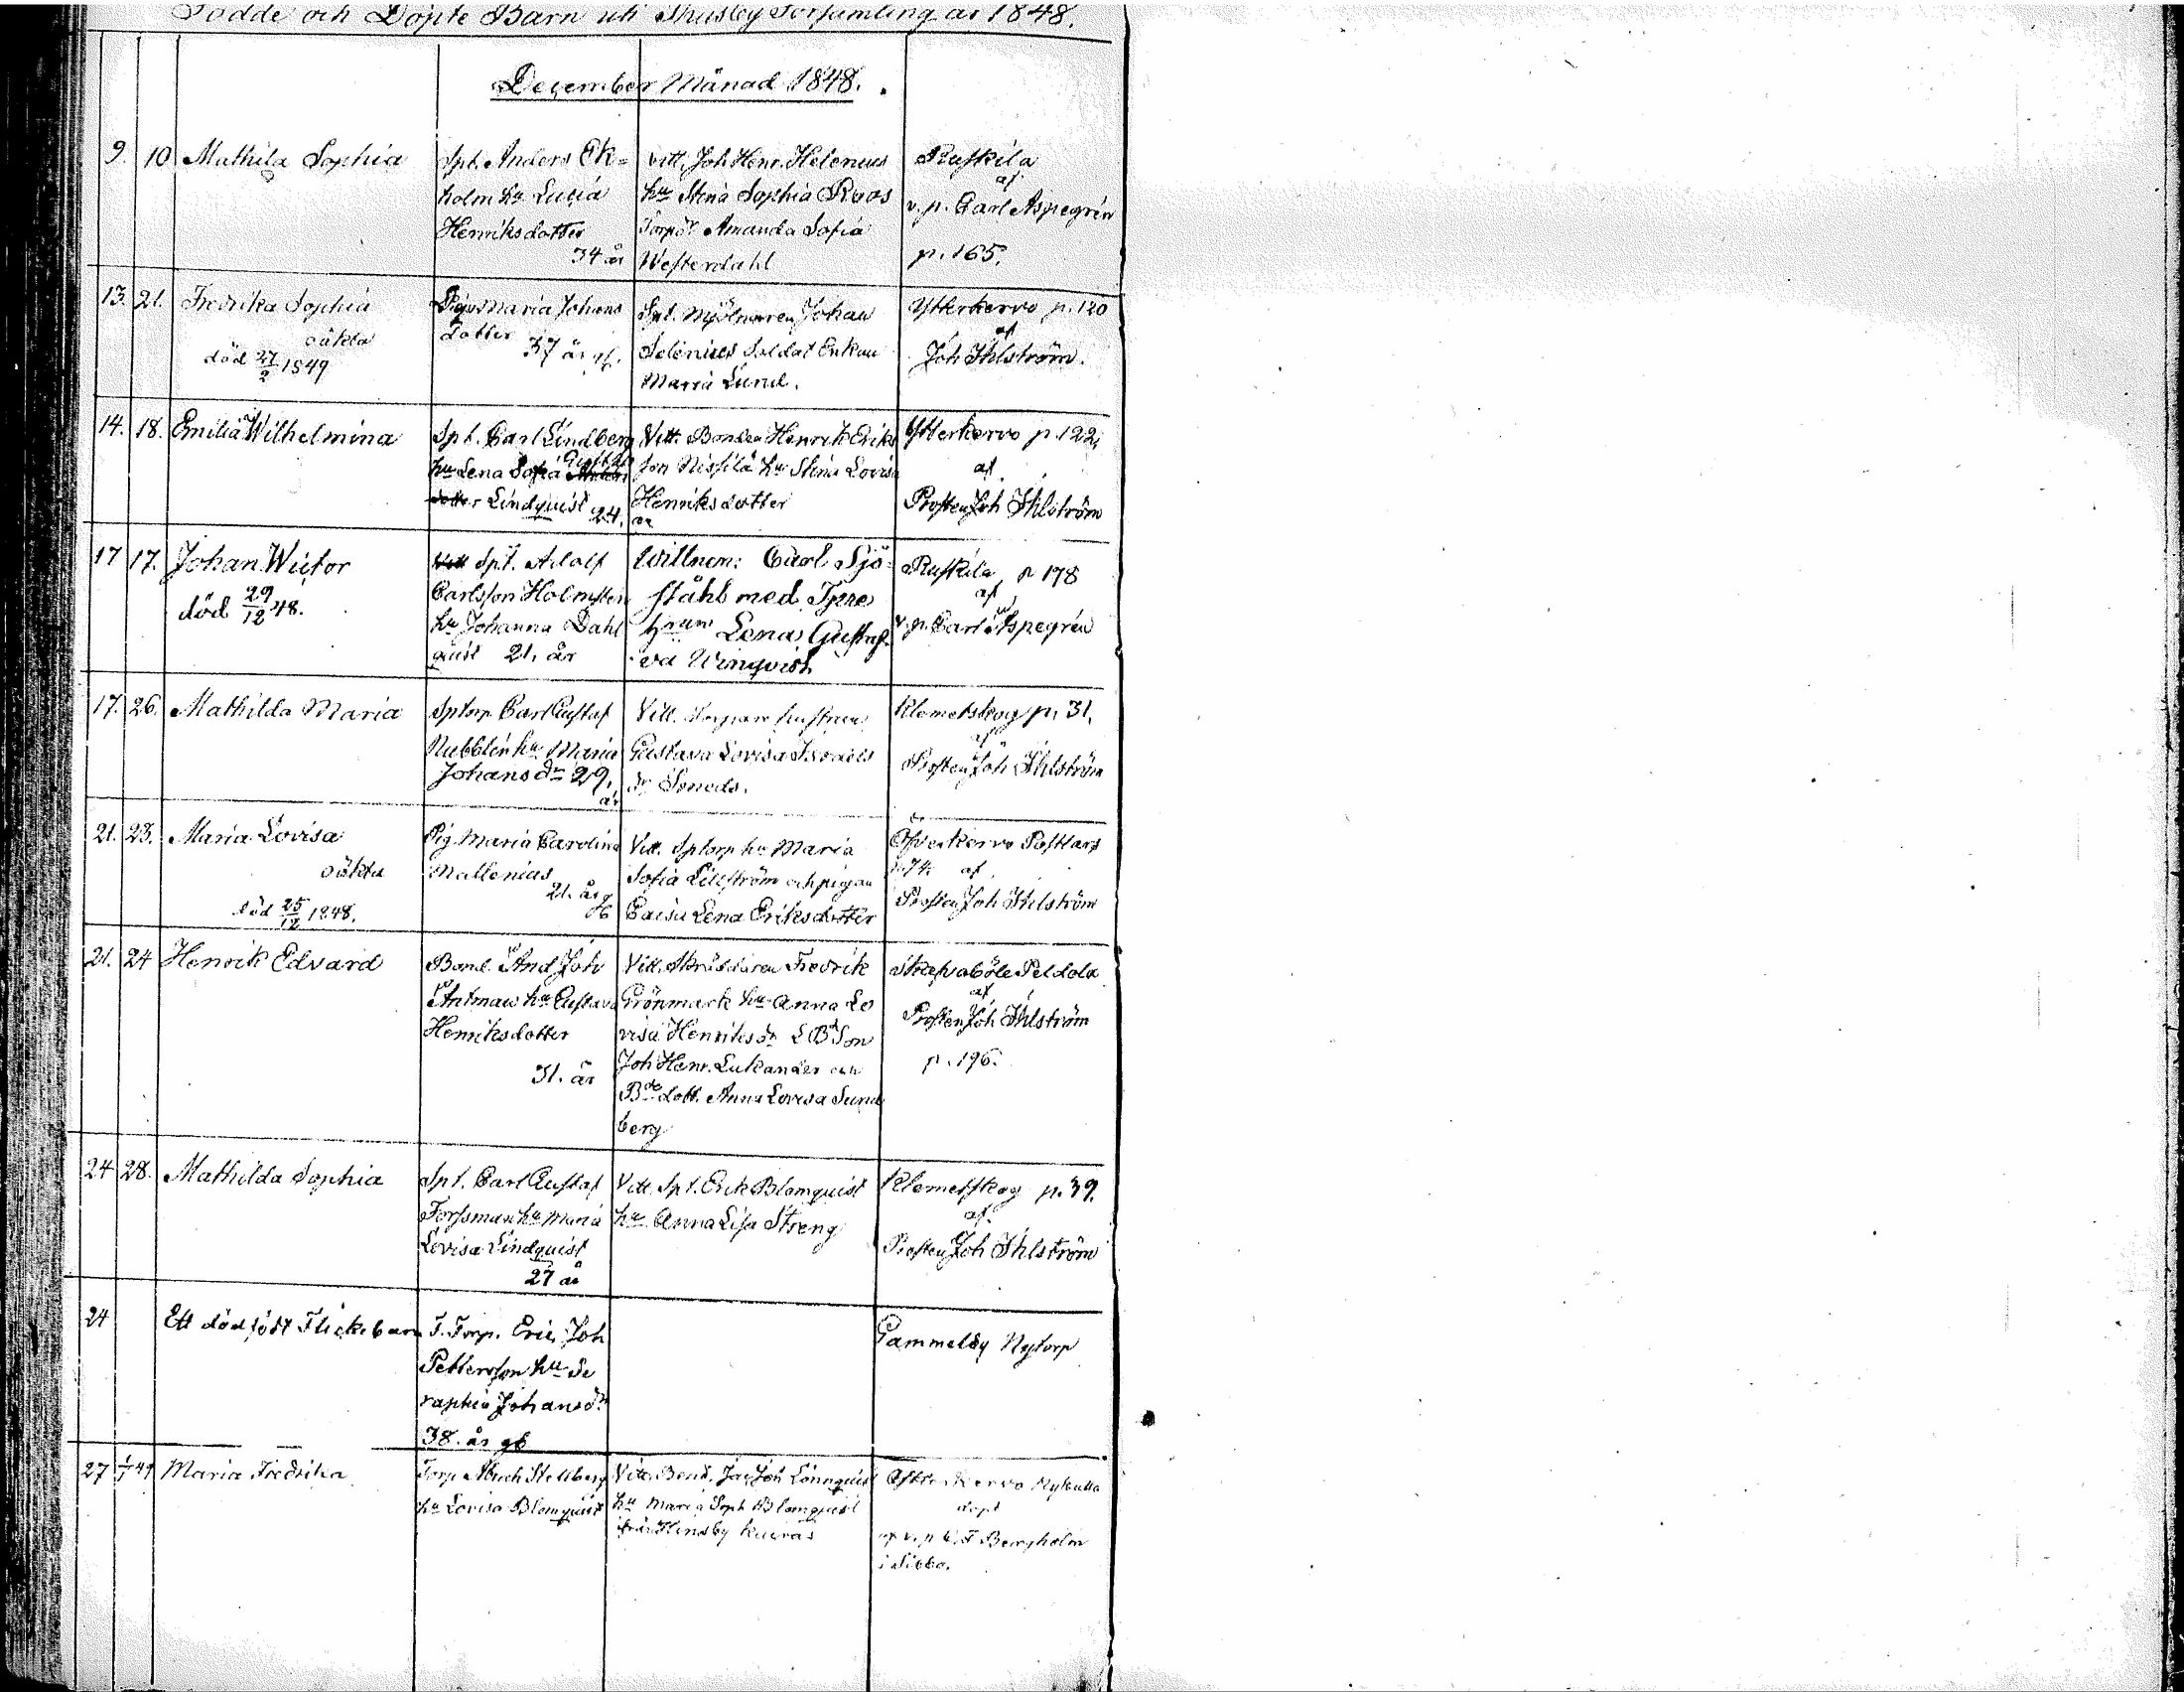 Födde och Döpte Barn uti Thusby Församling år 1848.
December Månad 1848.
9. 10. Mathilda Sophia
Spt. Anders Ek=
holm hu Lucia
Henriksdotter
34 år
Vitt. Joh Henr. Helenius
hu Stina Sophia Roos
Amanda Sofia
Westerdahl
Ruskila
af
v. p. Carl Aspegrén
p. 165.
13. 21. Fredrika Sophia
oäkta
död 27/2 1849
Pig. Maria Johans
dotter
37 år
Spt. Mjölnaren Johan
Selenius Soldat Enkan
Maria Lund.
Ytterkervo p. 120
af
Joh Ihlström.
14. 18. Emilia Wilhelmina
Spt. Carl Lindberg
hu Lena Sofia Gustafs
dotter Lindquist 24.
år
Vitt. Bonden Henrik Eriks
son Nissilä hu Stina Lovisa
Henriksdotter
Ytterkervo p. 122,
af
Prosten Joh Ihlström
17 17. Johan Victor
död 29/12 48.
Vitt Spt. Adolf
Carlsson Holmsten
hu Johanna Dahl
quist 21. år
Wittnen: Carl Sjö-
ståhl med
Lena Gustaf-
va Winqvist
Ruskila p 178
af
v. p. Carl Aspegrén
17. 26. Mathilda Maria
Sptorp Carl Gustaf
Nubblin hu Maria
Johans dr 29.
år
Vitt. Torpare hustrun
Gustava Lovisa Israels
dr Smeds.
Klemetskog p. 31.
af
Prosten Joh Ihlström
21. 23. Maria Lovisa
oäkta
död 25/12 1848.
Pig. Maria Carolina
Mallenius
21. år
Vitt. Sptorp hu Maria
Sofia Lillström och pigan
Caisa Lena Eriksdotter
Öfverkervo Postlars
p. 74. af
Prosten Joh Ihlström
21. 24 Henrik Edvard
Bond. And Joh
Antman hu Gustava
Henriksdotter
31. år
Vitt. Skräddaren Fredrik
Grönmark hu Anna Lo
visa Henriks dr Son
Joh Henr. Lukander och
Bde dott. Anna Lovisa Sund
berg
Skafvaböle Peldola
af
Prosten Joh Ihlström
p. 196.
24 28. Mathilda Sophia
Spt. Carl Gustaf
Forssman hu Maria
Lovisa Lindquist
27 år
Vitt. Spt. Erik Blomquist
hu Anna Lisa Streng
Klemetskog p. 39.
af
Prosten Joh Ihlström
24 Ett dödfödt Flickebarn
F. Torp. Eric Joh
Pettersson hu Se
raphia Johans dr
38. år gb
Gammelby Nytorp
27 1/1 49 Maria Fredrika
Torp. Mich Stellberg
hu Lovisa Blomquist
Vitt. Bond. Joh Lönnquist
hu Maria Soph Blomquist
från Hindsby
Öfverkervo
döpt
af v. p. Bergholm
i Sibbo.